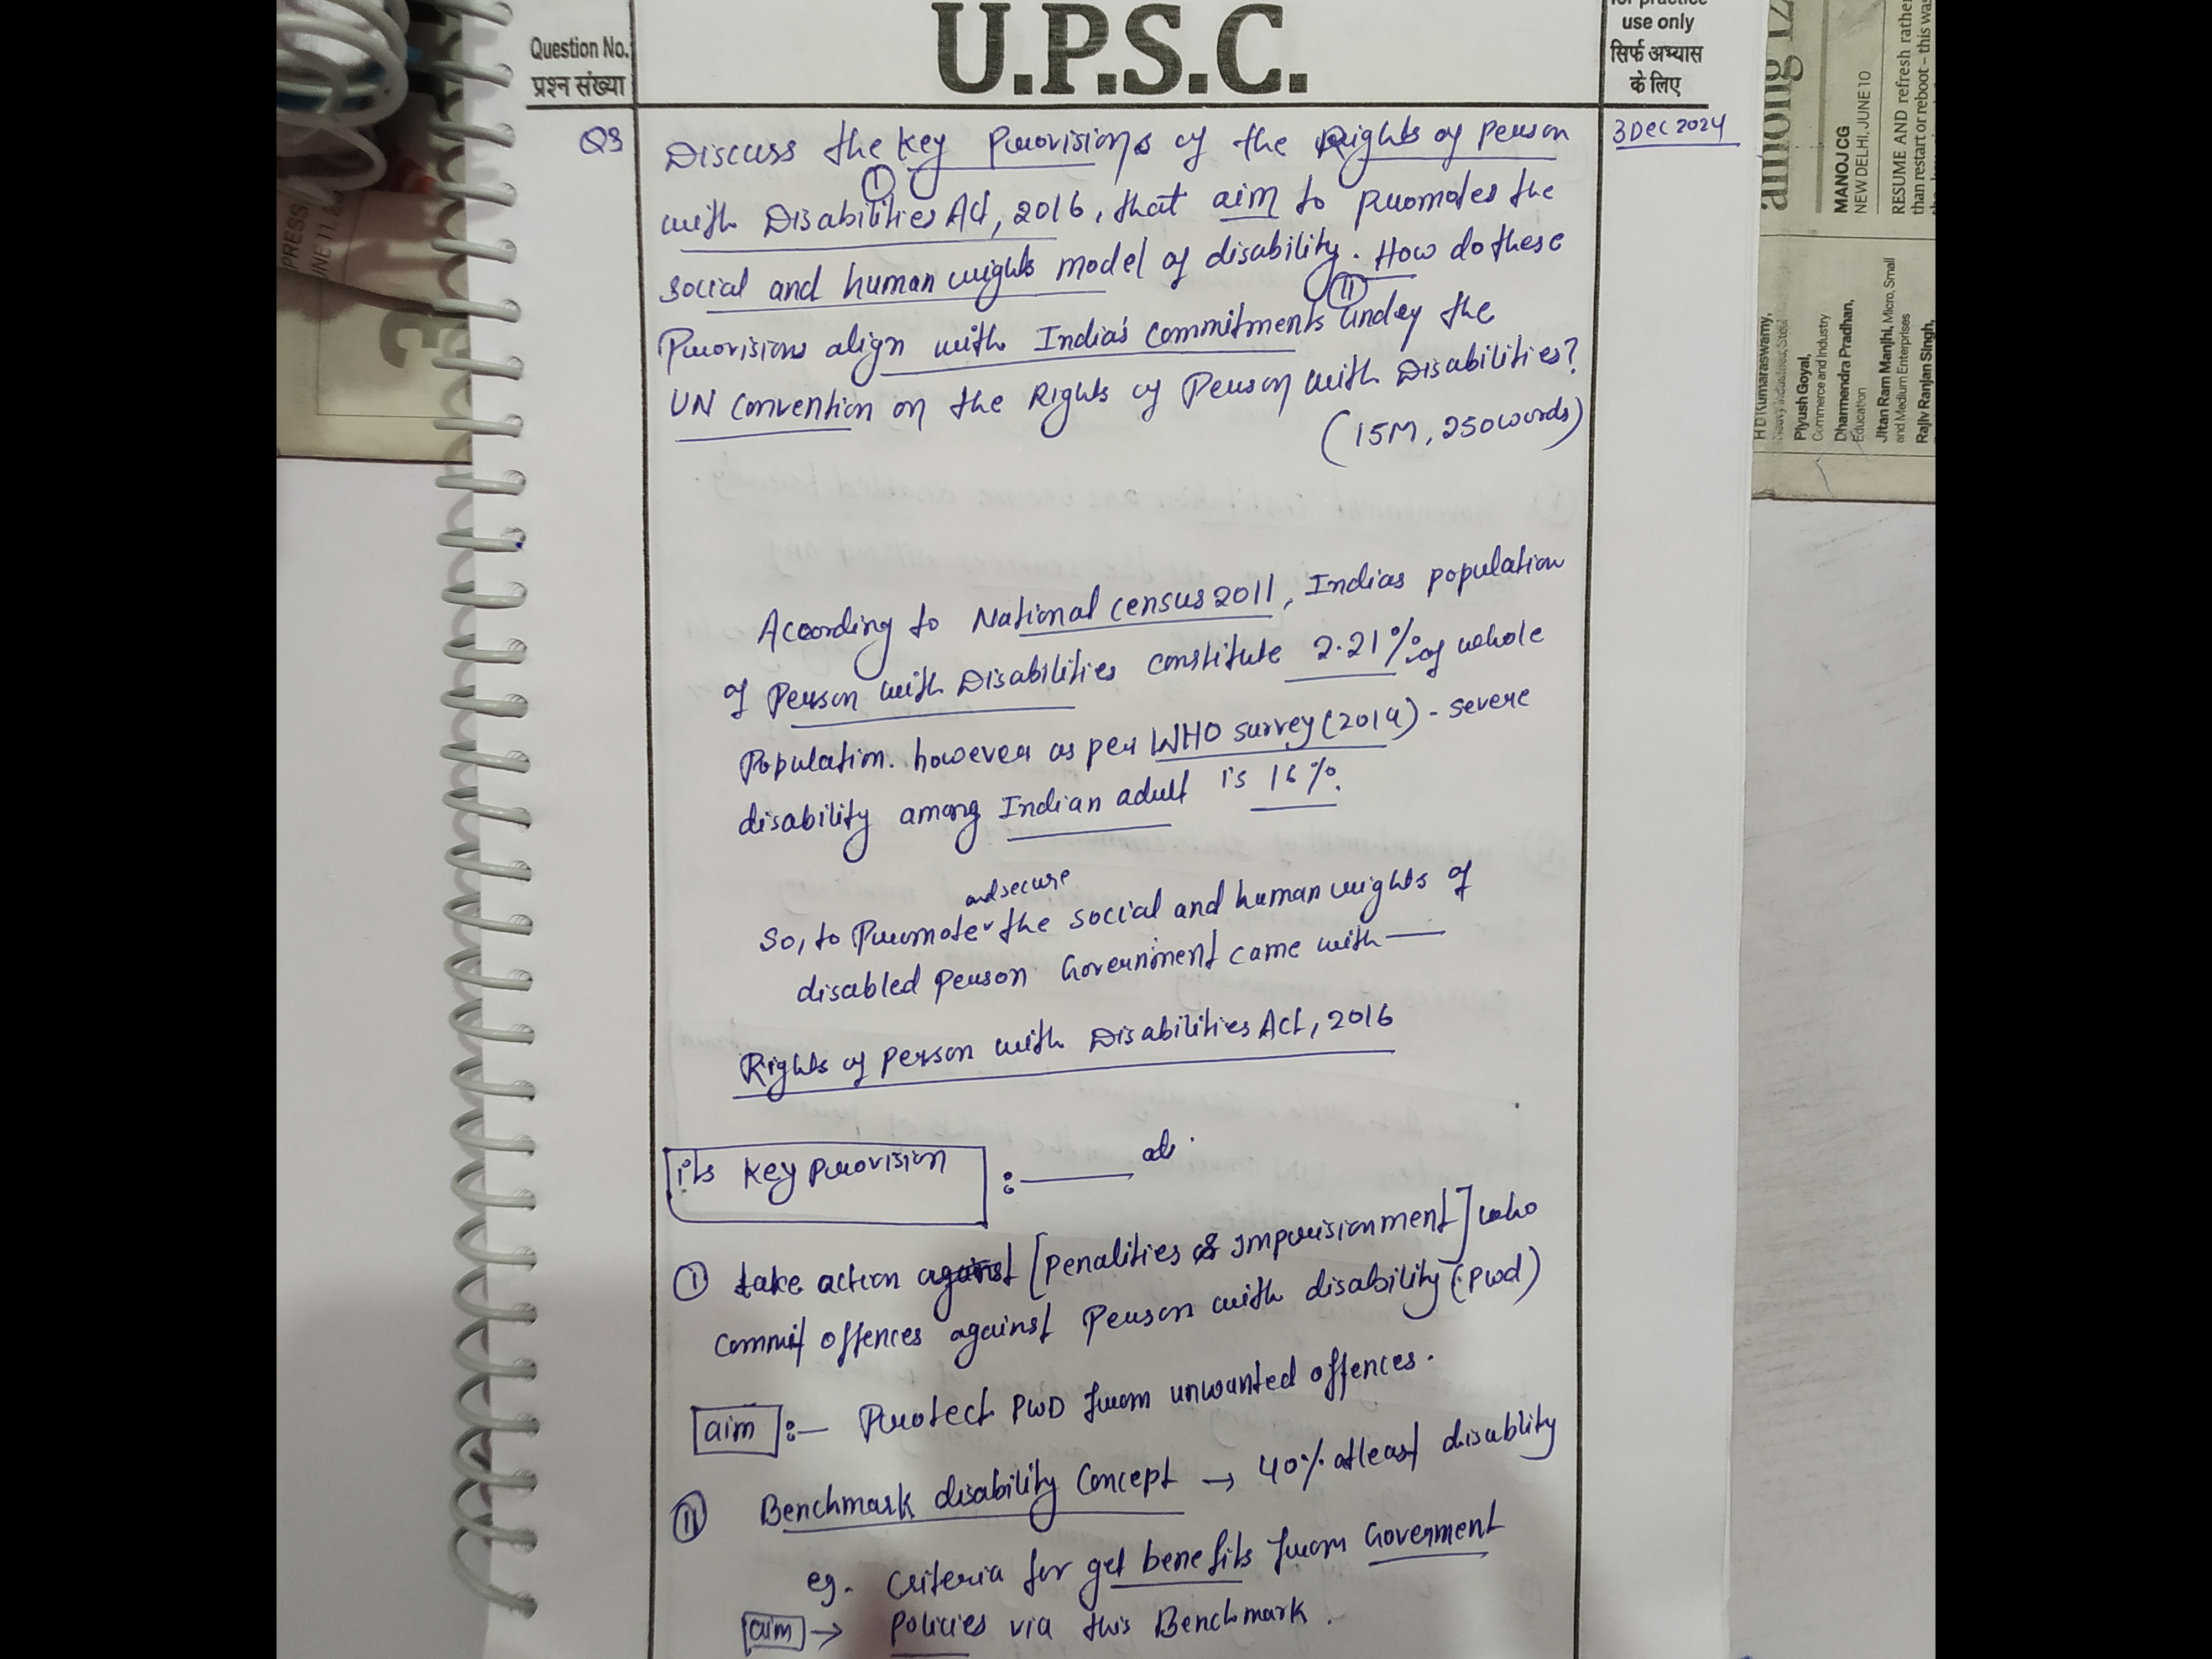 U.P.S.C.
Question No.
प्रश्न संख्या
for practice
use only
सिर्फ अभ्यास
के लिए
3 Dec 2024
Q3
Discuss the key Provisions of the Rights of Person
with Disabilities Act, 2016, that aim to Promotes the
social and human rights model of disability. How do these
Provisions align with India's commitments under the
UN Convention on the Rights of Person with Disabilities?
(15M, 250words)
I
II
According to National census 2011, Indias population
of Person with Disabilities constitute 2.21% of whole
Population. however as per WHO survey (2019) - severe
disability among Indian adult is 16%.
and secure
So, to Promote the social and human rights of
disabled Person Government came with —
Rights of Person with Disabilities Act, 2016
its key provision :—
I take action against [Penalities & Imprisionment] who
commit offences against Person with disability (Pwd)
aim :— Protect PWD from unwanted offences.
II Benchmark disability Concept → 40% atleast disablity
eg. criteria for get benefits from Goverment
aim → Policies via this Benchmark.
PRESS
JUNE 11, 2
among 12
MANOJ CG
NEW DELHI, JUNE 10
RESUME AND refresh rather
than restart or reboot – this was
H D Kumaraswamy,
Piyush Goyal,
Commerce and Industry
Dharmendra Pradhan,
Education
Jitan Ram Manjhi, Micro, Small
and Medium Enterprises
Rajiv Ranjan Singh,